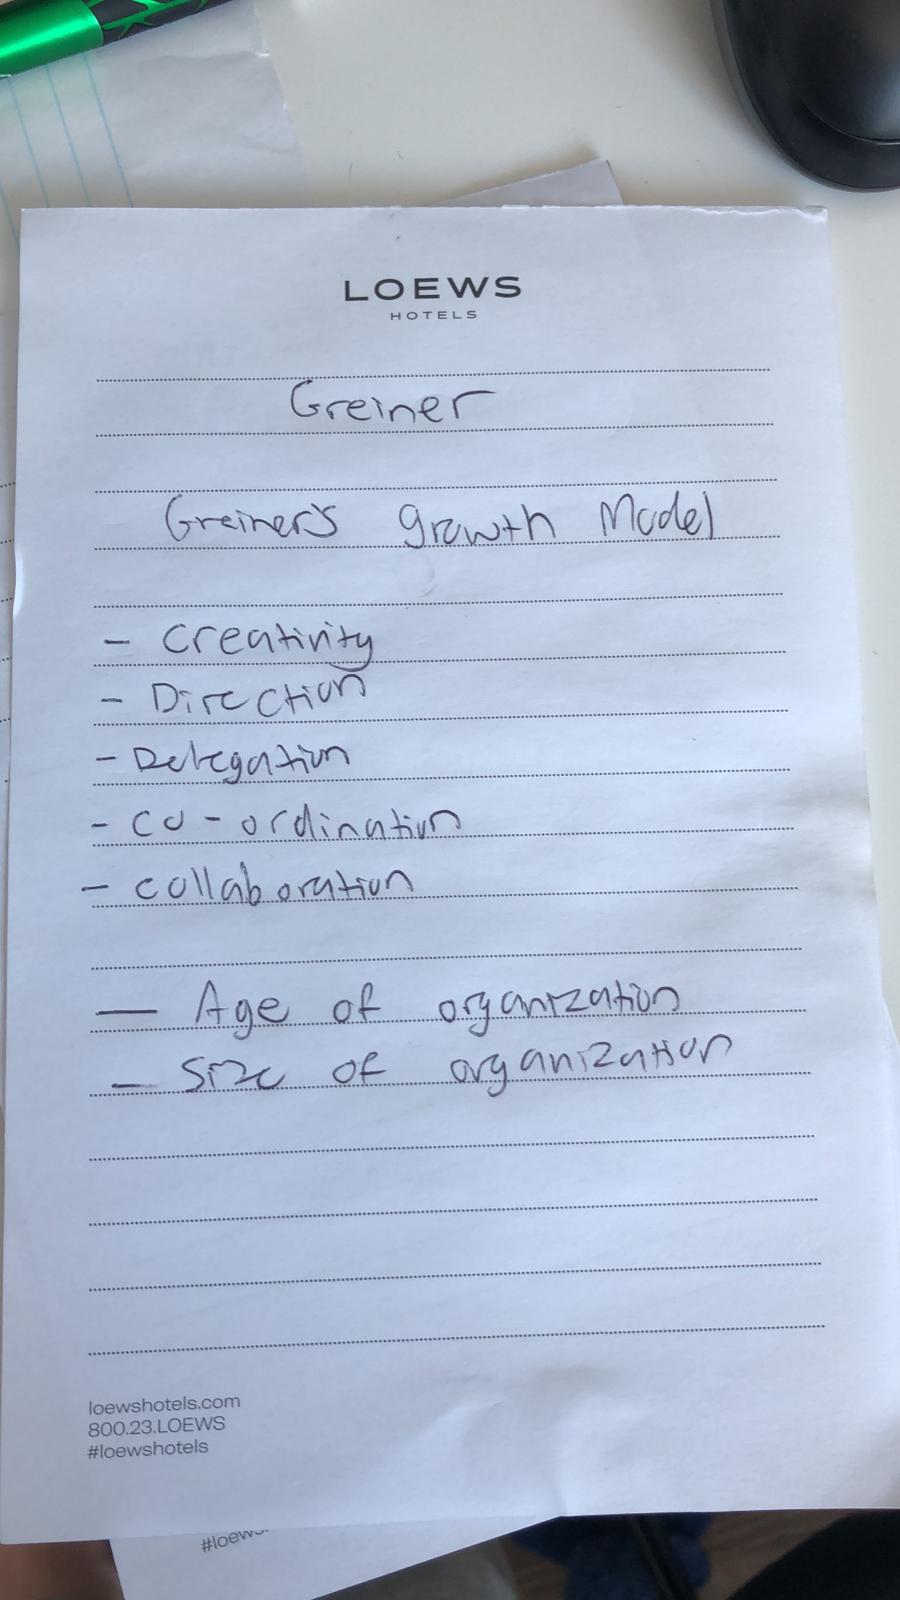 LOEWS
HOTELS
Greiner
Greiner's growth Model
- Creativity
- Direction
- Delegation
- co-ordination
- collaboration
— Age of organization
- Size of organization
loewshotels.com
800.23.LOEWS
#loewshotels
#loews